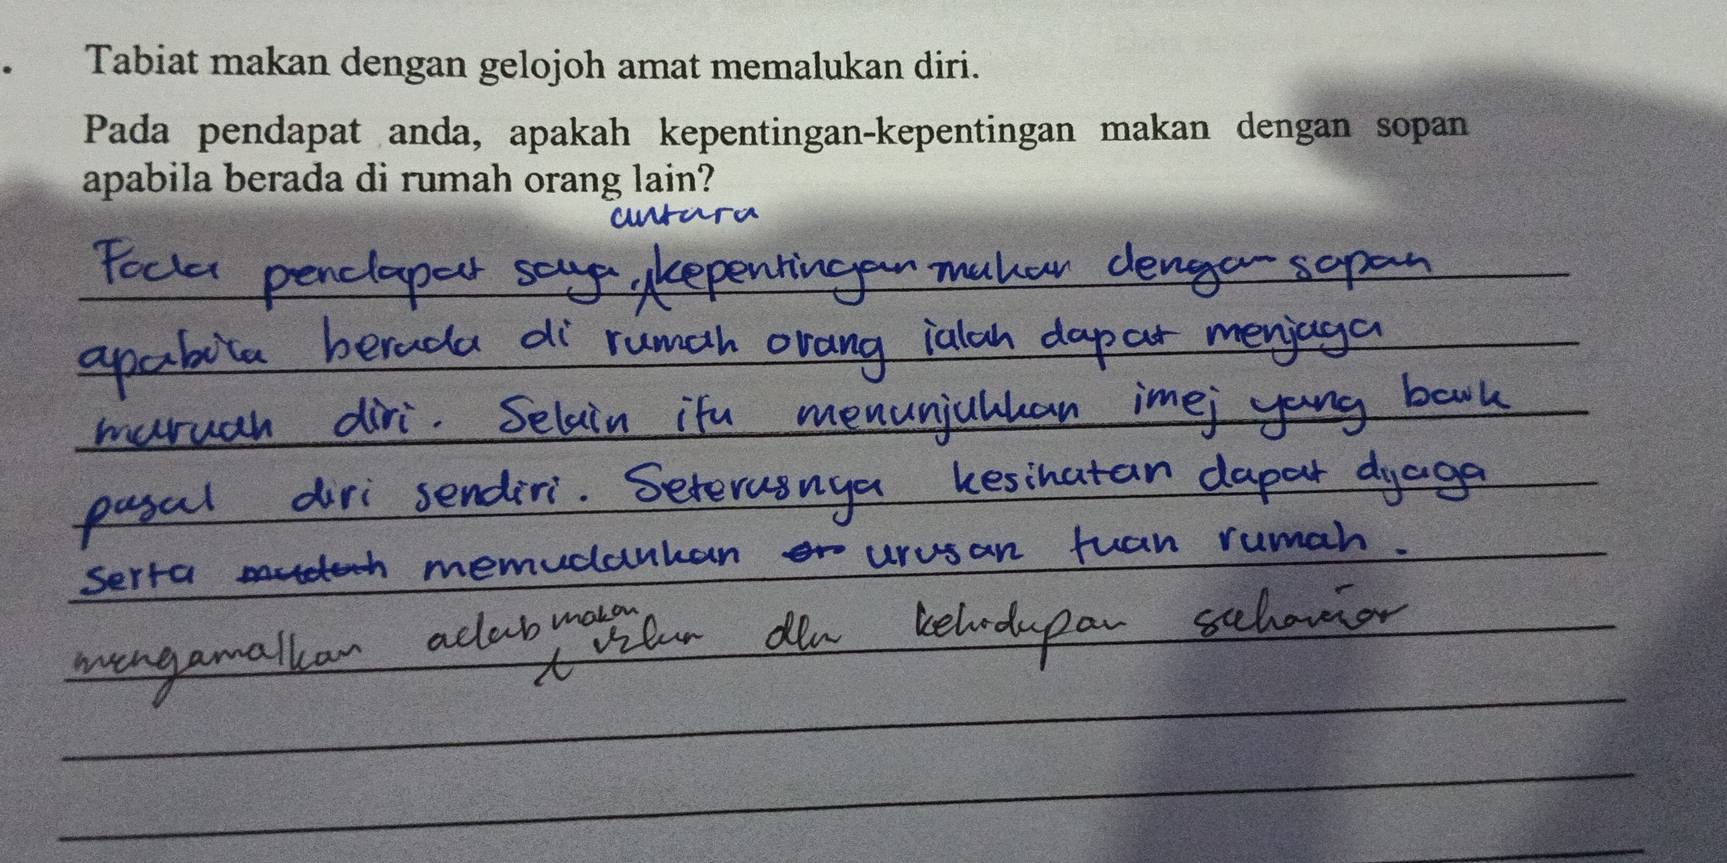 Tabiat makan dengan gelojoh amat memalukan diri.
Pada pendapat anda, apakah kepentingan-kepentingan makan dengan sopan
apabila berada di rumah orang lain?
antara
Pada pendapat saya, kepentingan makan dengan sopan
apabila berada di rumah orang ialah dapat menjaga
maruah diri. Selain itu menunjukkan imej yang baik
pasal diri sendiri. Seterusnya kesihatan dapat dijaga
serta memudahkan urusan tuan rumah.
makan
mengamalkan adab dlm kehidupan seharian